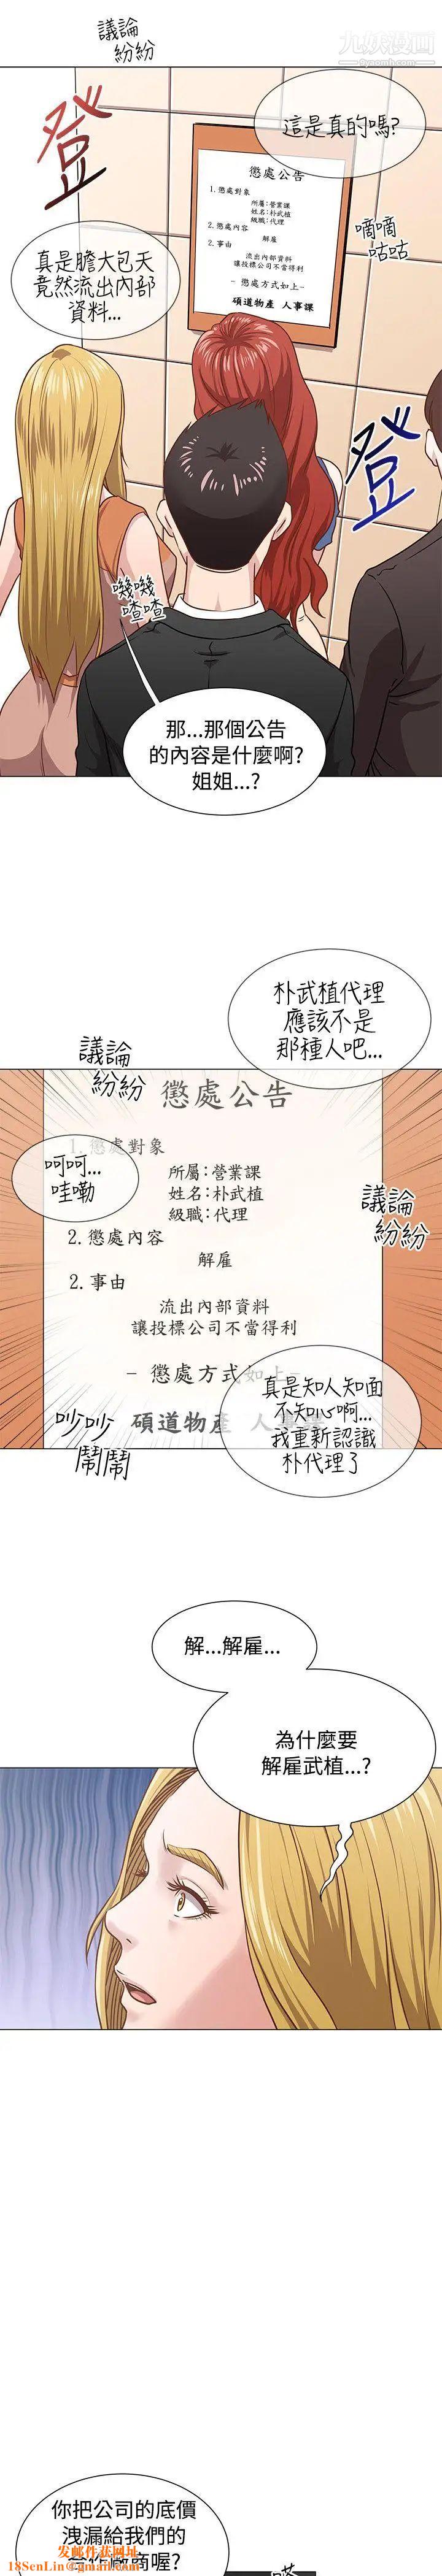 議論
紛紛
九妖漫画
9yaomh.com
登
這是真的嗎?
懲處公告
1.懲處對象
所屬:營業課
姓名:朴武植
級職:代理
2.懲處內容
解雇
2.事由
流出內部資料
讓投標公司不當得利
- 懲處方式如上-
碩道物產 人事課
嘀嘀
咕咕
真是膽大包天
竟然流出內部
資料...
登
嘰嘰
喳喳
那...那個公告
的內容是什麼啊?
姐姐...?
朴武植代理
應該不是
那種人吧...
議論
紛紛
懲處公告
1.懲處對象
呵呵...
哇嘞
所屬:營業課
姓名:朴武植
級職:代理
議論
紛紛
2.懲處內容
解雇
2.事由
流出內部資料
讓投標公司不當得利
- 懲處方式如上-
碩道物產 人事課
真是知人知面
不知心啊...
我重新認識
朴代理了
吵吵
鬧鬧
解...解雇...
為什麼要
解雇武植...?
你把公司的底價
洩漏給我們的
合作廠商喔?
发邮件获网址
18SenLin@Gmail.com